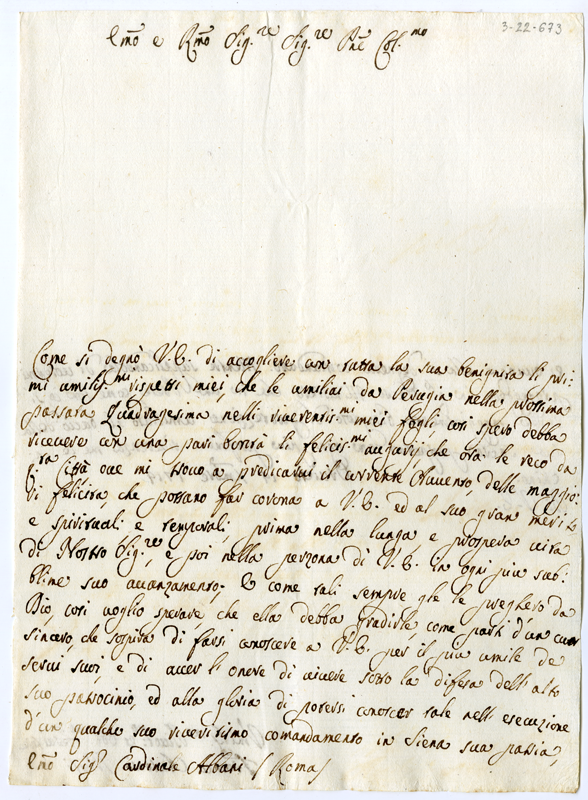 3-22-673
Em̃o e Rm̃o Sig.re Sig.re Pne Col.mo
Come si degnò V.E. di accogliere con tutta la sua benignità li pri:
mi umiliss.mi rispetti miei, che le umiliai da Perugia nella prossima
passata Quadragesima nelli riverentis.mi miei fogli così spero debba
ricevere con una pari bontà li felicis.mi augurj, che ora le reco da
q.ta Città ove mi trovo a predicarvi il corrente Avvento, delle maggio:
ri felicità, che possano far corona a V.E. ed al suo gran merito
e spirituali e temporali; prima nella lunga e prospera vita
di Nostro Sig.re, e poi nella persona di V.E. in ogni più sub:
blime suo avanzamento. E come tali sempre gle le pregherò da
Dio, così voglio sperare che ella debba gradirle come parti d'un cuor
sincero, che sospira di farsi conoscere a V.E. per il più umile de
servi suoi, e di aver l'onore di vivere sotto la difesa dell'alto
suo patrocinio, ed alla gloria di potersi conoscer tale nell esecuzione
d'un qualche suo riveritissimo comandamento in Siena sua patria,
Em̃o Sig.r Cardinale Albani (Roma)